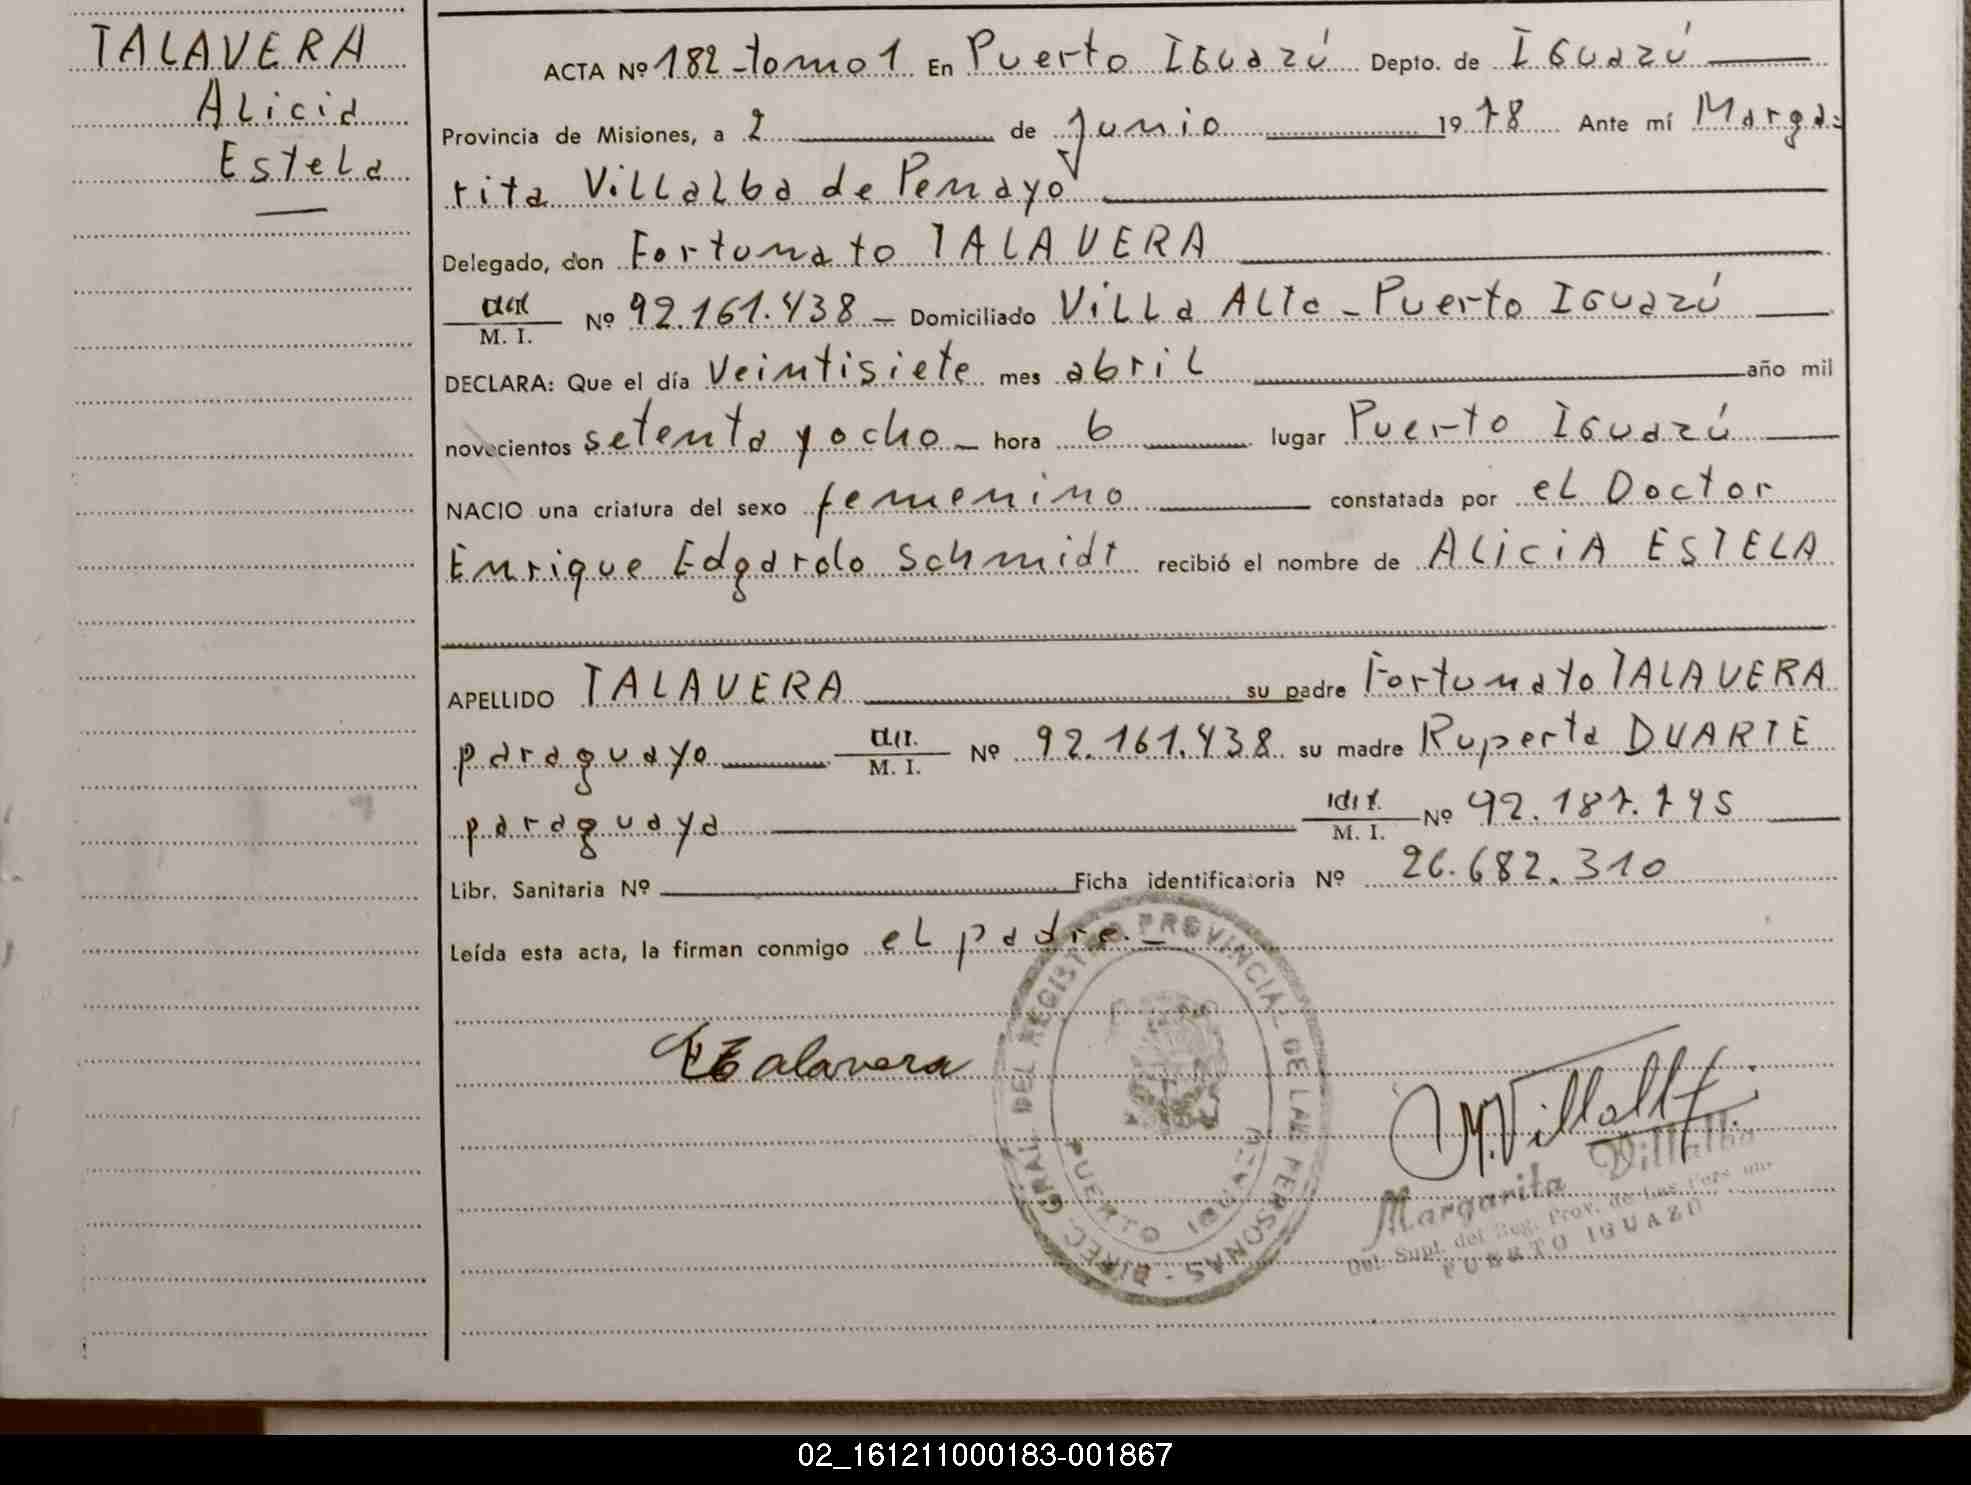 TALAVERA
Alicia
Estela
ACTA Nº 182 - tomo 1 En Puerto Iguazú Depto. de Iguazú
Provincia de Misiones, a 2 de Junio 1978 Ante mí Marga-
rita Villalba de Penayo
Delegado, don Fortunato TALAVERA
M. I. Nº 92.161.438 - Domiciliado Villa Alta - Puerto Iguazú
DECLARA: Que el día veintisiete mes abril año mil
novecientos setenta y ocho - hora 6 lugar Puerto Iguazú
NACIO una criatura del sexo femenino constatada por el Doctor
Enrique Edgardo Schmidt recibió el nombre de ALICIA ESTELA
APELLIDO TALAVERA su padre Fortunato TALAVERA
paraguayo M. I. Nº 92.161.438 su madre Ruperta DUARTE
paraguaya M. I. Nº 92.187.795
Libr. Sanitaria Nº Ficha identificatoria Nº 26.682.310
Leída esta acta, la firman conmigo el padre. -
Talavera
DIREC. GRAL. DEL REGISTRO PROVINCIAL DE LAS PERSONAS -
PUERTO IGUAZU
M. Villalba
Margarita Villalba
Del. Supl. del Reg. Prov. de Las Personas
PUERTO IGUAZU
02_161211000183-001867